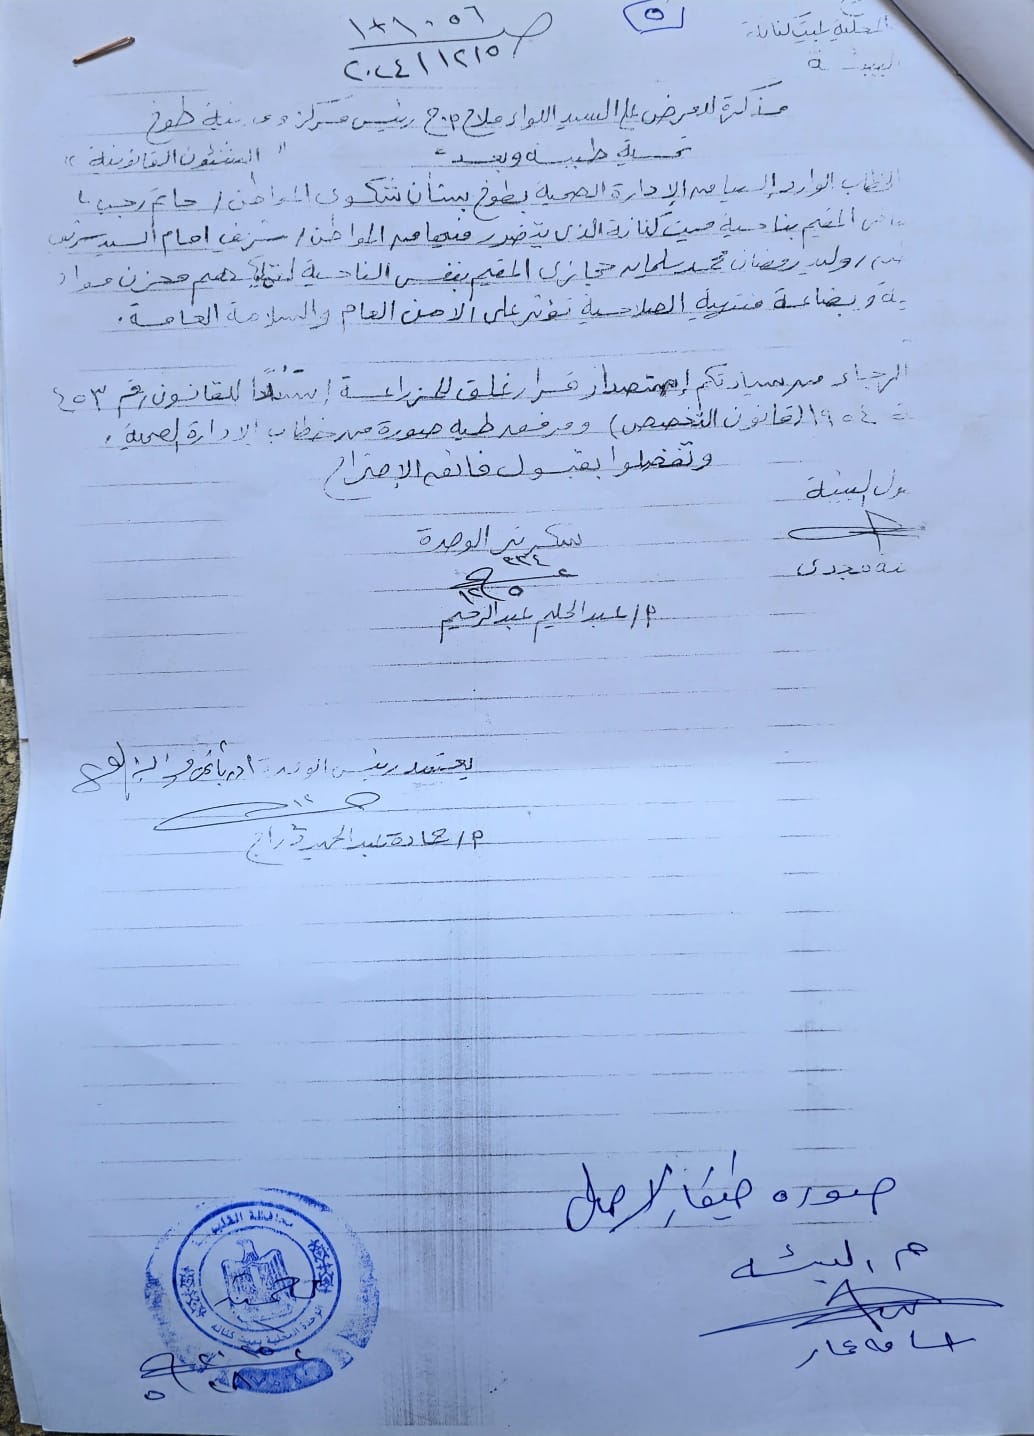 ٥
ص ١٠٠٥٦
٢٠٢٤/١٢/٥
المحلية بميت كنانة
البيئة
مذكرة للعرض على السيد اللواء رئيس مركز ومدينة طوخ
تحية طيبة وبعد " الشئون القانونية "
الخطاب الوارد إلينا من الإدارة الصحية بطوخ بشأن شكوى المواطن / حاتم رجب
المقيم بناحية ميت كنانة الذى يتضرر فيها من المواطن / شريف امام السيد
/ وليد رمضان محمد سلمان حجازى المقيم بنفس الناحية مخزن مواد
وبضاعة منتهية الصلاحية تؤثر على الامن العام والسلامة العامة .
الرجاء من سيادتكم إستصدار قرار غلق إستناداً للقانون رقم ٤٥٣
١٩٥٤ (قانون التخصص) ومرفق طيه صورة من خطاب الإدارة الصحية .
وتفضلوا بقبول فائق الإحترام
البيئة
سكرتير الوحدة
مجدى
م/ عبدالحليم عبدالرحيم
يعتمد رئيس الوحدة
م/ حمادة عبدالحميد
صورة طبق الاصل
م. البيئه
محافظة القليوبية
الوحدة المحلية بميت كنانة